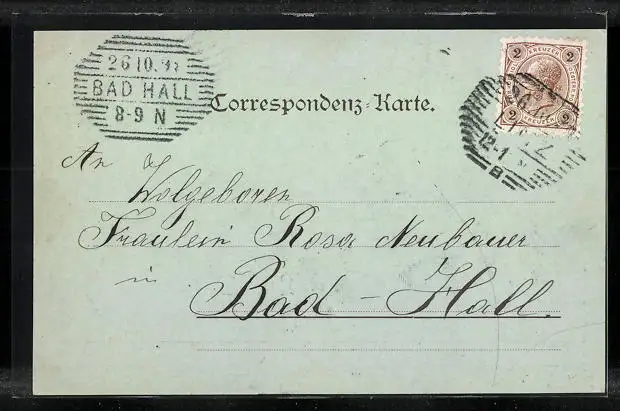 26 10. 9
BAD HALL
8-9 N
Correspondenz-Karte.
2 KREUZER 2
2 2
LINZ
12-1
B
An
Wolgeboren
Fräulein Rosa Neubauer
in
Bad-Hall.